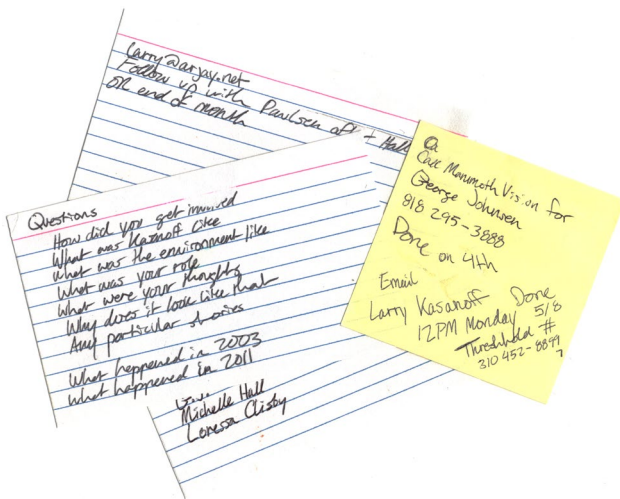 larry@arjay.net
Follow up with Paulsen + Hall
OR end of month
Questions
How did you get involved
What was Kasanoff like
What was the environment like
What was your role
What were your thoughts
Why does it look like that
Any particular stories
What happened in 2003
What happened in 2011
Michelle Hall
Loressa Clisby
Call Mammoth Vision for
George Johnsen
818 295-3888
Done on 4th
Email
Larry Kasanoff Done
12PM Monday 5/8
Threshhold #
310 452-8899